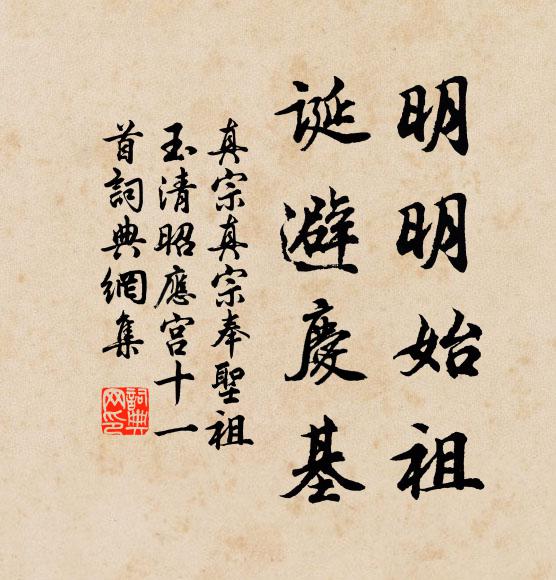 明明始祖
誕避慶基
真宗真宗奉聖祖
玉清昭應宫十一
首詞典網集
詞典
网印